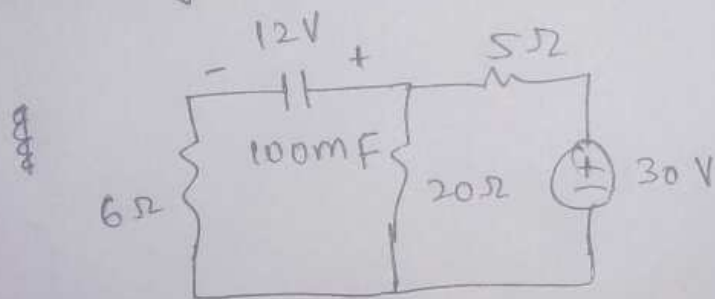 12V
5Ω
- +
100mF
6Ω
20Ω
+
-
30 V